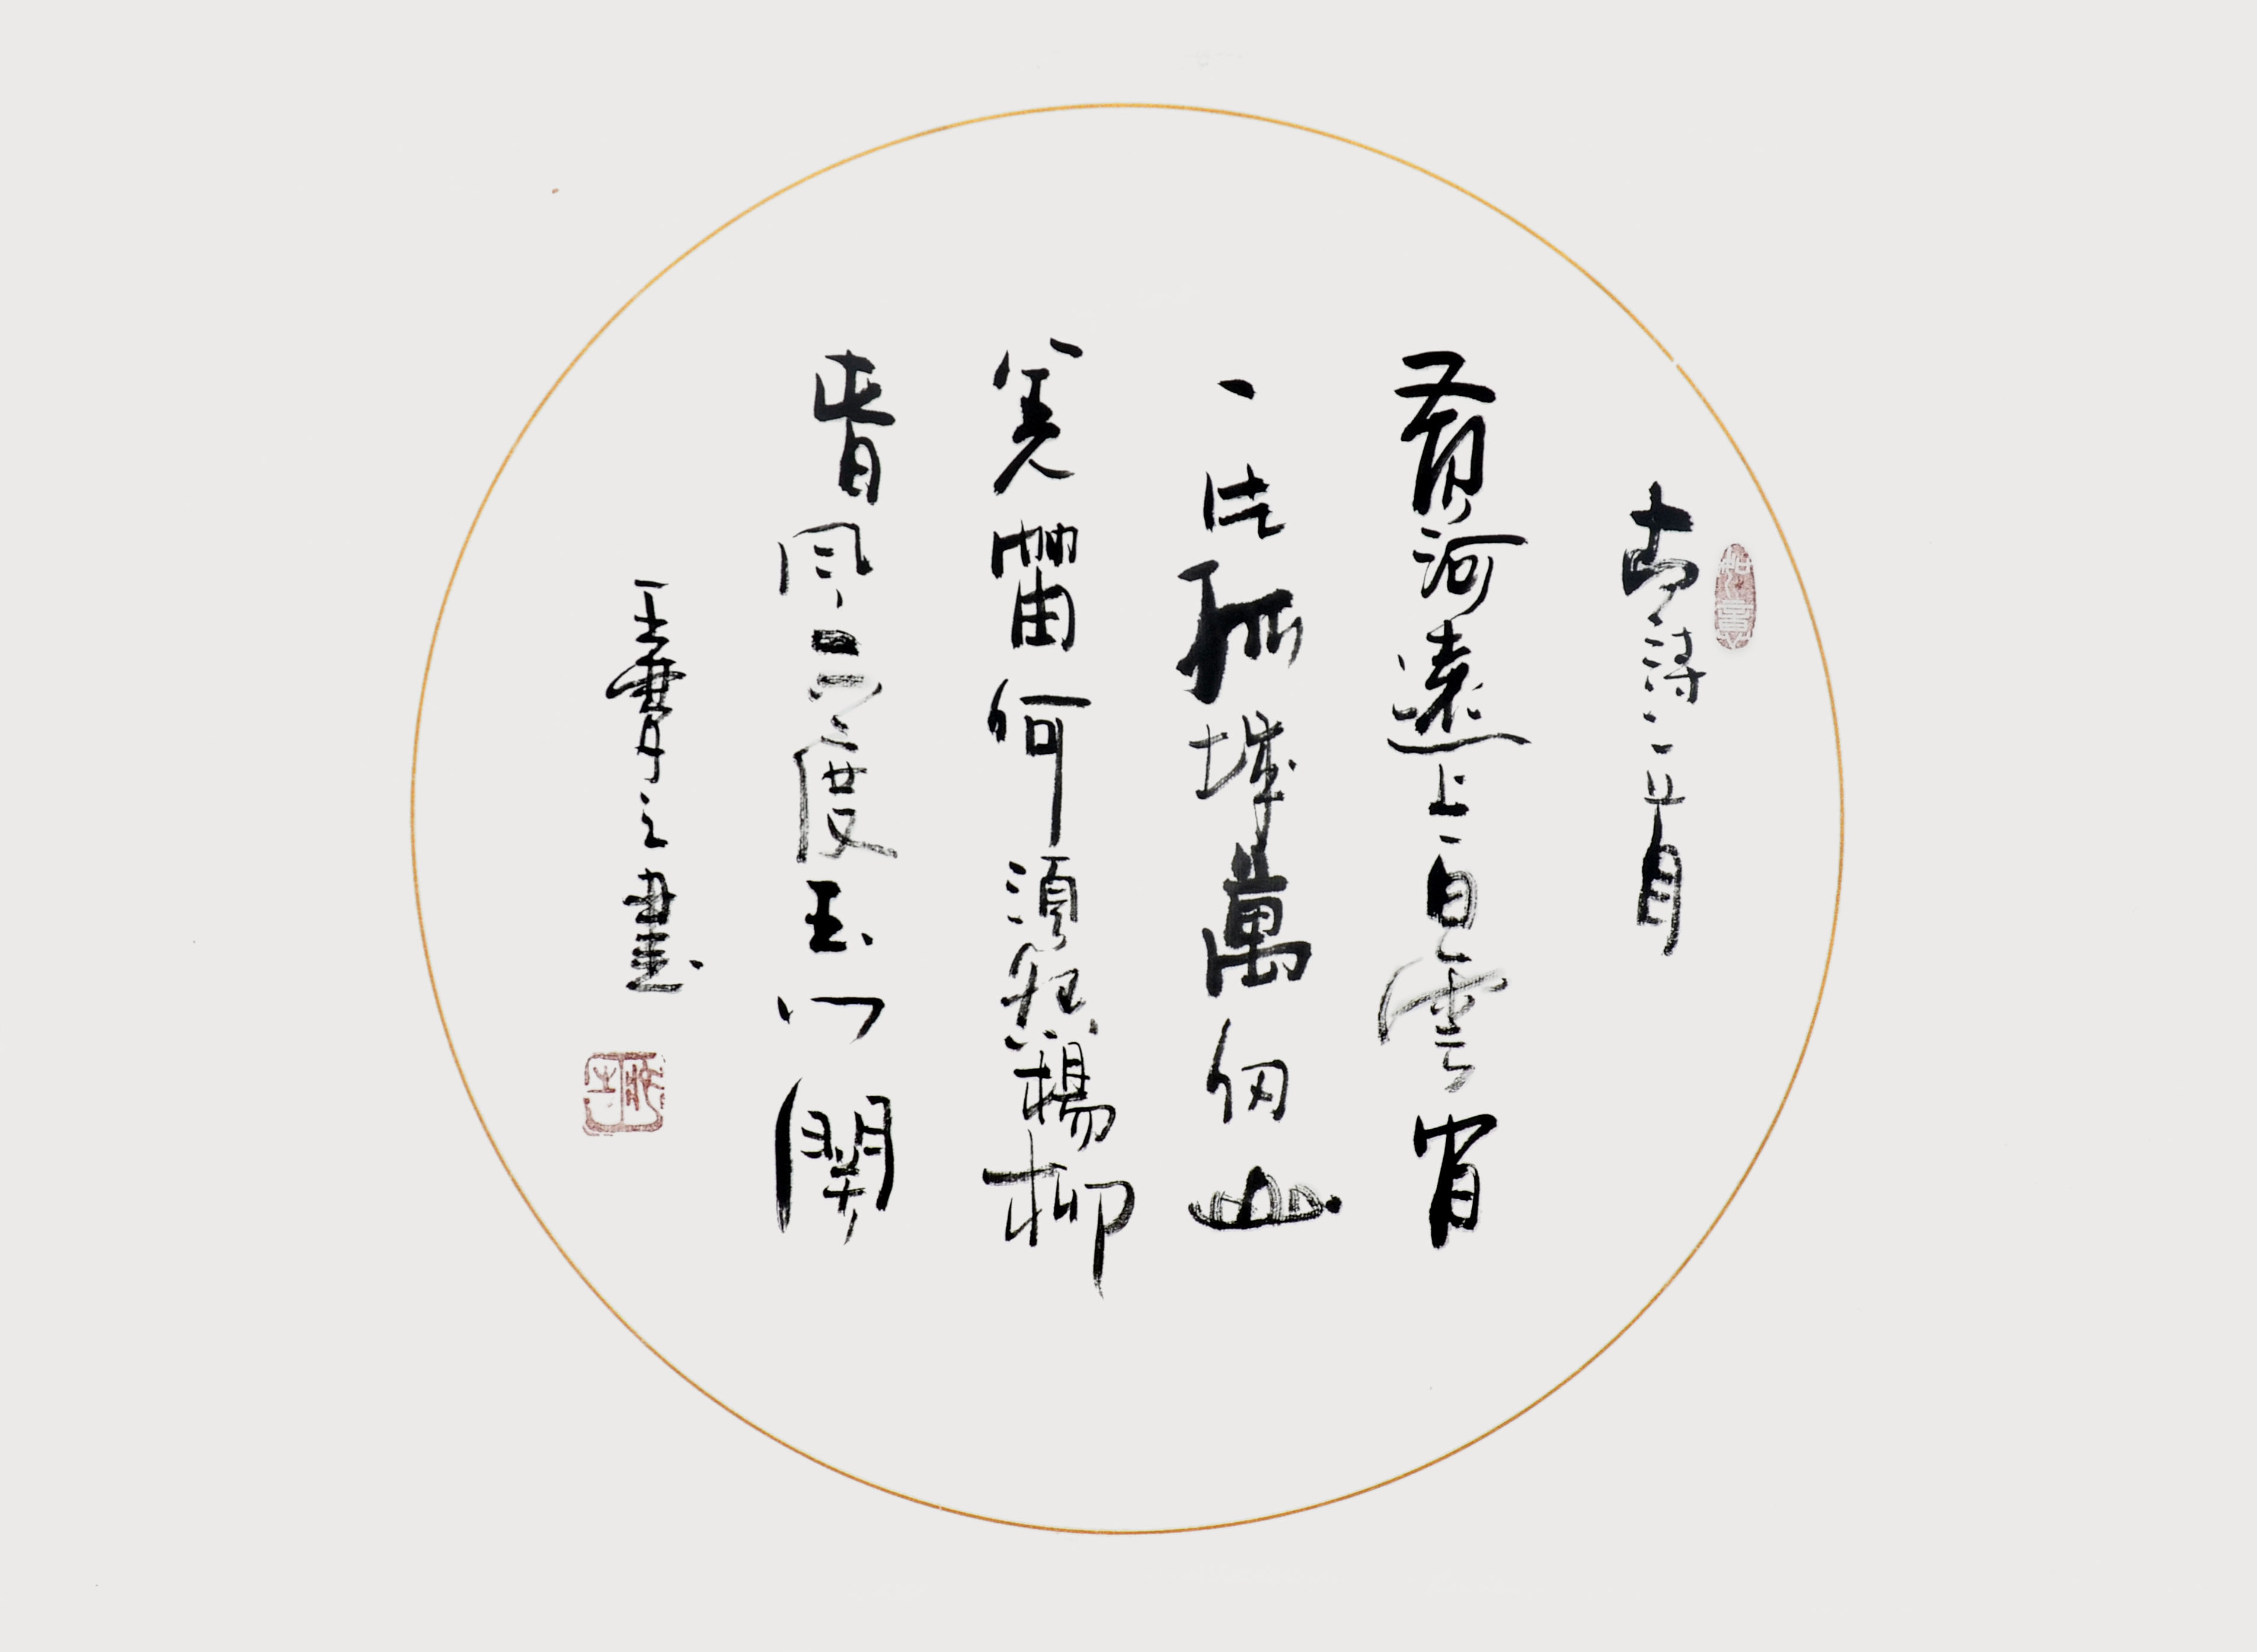 古詩一首
黃河遠上白雲間
一片孤城萬仞山
羌笛何須怨楊柳
春風不度玉門關
王之書